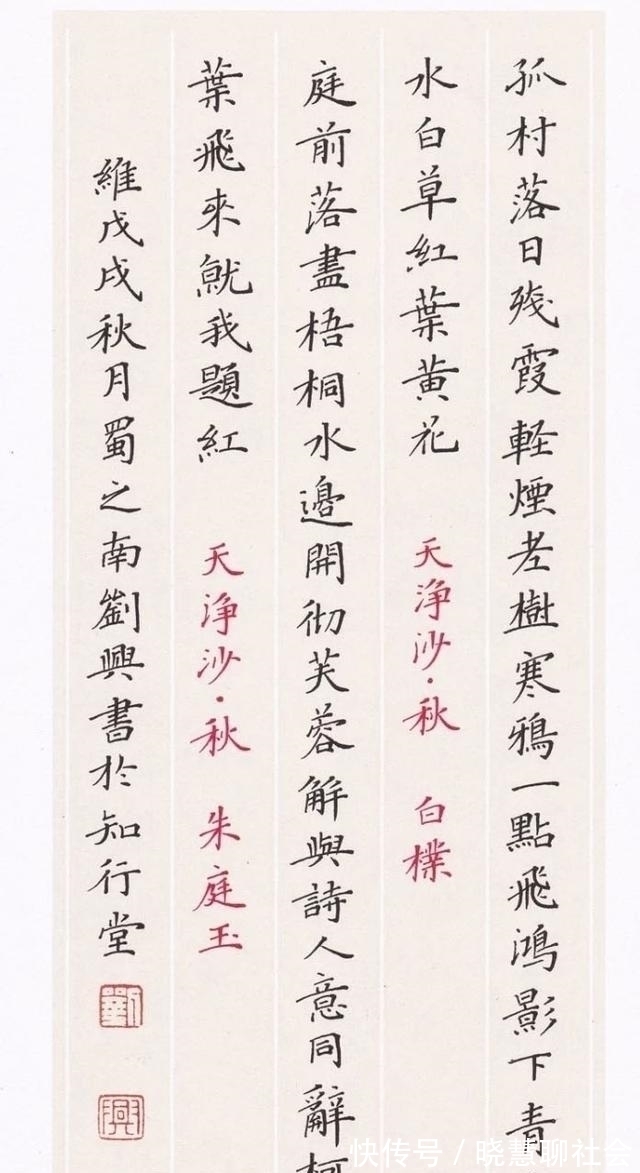 孤村落日残霞軽煙老樹寒鴉一點飛鴻影下青
水白草紅葉黄花 天浄沙·秋 白樸
庭前落盡梧桐水邊開彻芙蓉解與詩人意同辭柯
葉飛來就我題紅 天浄沙·秋 朱庭玉
維戊戌秋月蜀之南劉興書於知行堂
劉
興
快传号 / 晓慧聊社会